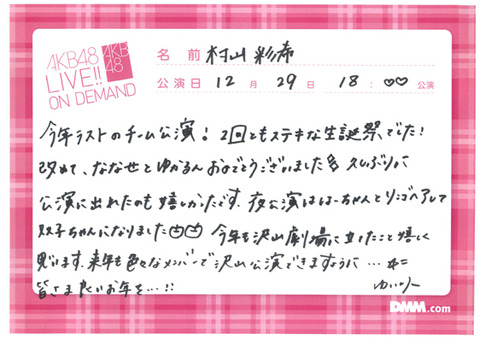 AKB48
LIVE!!
ON DEMAND
AKB
48
名前 村山彩希
公演日 12月29日 18:00公演
今年ラストのチーム公演！2回ともステキな生誕祭でした！
改めて、ななせとゆかるんおめでとうございました 久しぶりに
公演に出れたのも嬉しかったです。夜公演ははーちゃんとリンゴヘアして
双子ちゃんになりました 今年も沢山劇場に立てたこと嬉しく
思います。来年も色々なメンバーで沢山公演できますように…
皆さま良いお年を…!!
ゆいりー
DMM.com